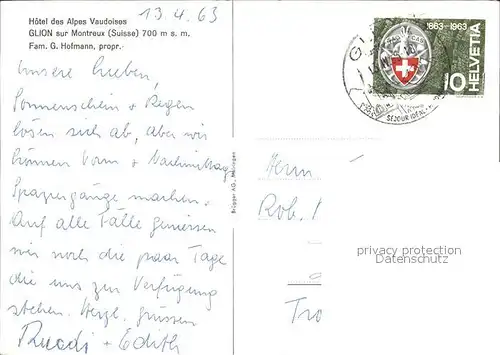 13.4.63
Hôtel des Alpes Vaudoises
GLION sur Montreux (Suisse) 700 m s. m.
Fam. G. Hofmann, propr.
Unsere Lieben,
Sonnenschein + Regen
lösen sich ab, aber wir
können Vorm + Nachmittag
Spaziergänge machen.
Auf alle Fälle geniessen
wir noch die paar Tage
die uns zur Verfügung
stehen. Herzl. grüssen
Ruedi + Edith
Brügger AG, Meiringen
1863-1963
HELVETIA
10
SEJOUR IDEAL
Herrn
Rob.
Tro
privacy protection
Datenschutz